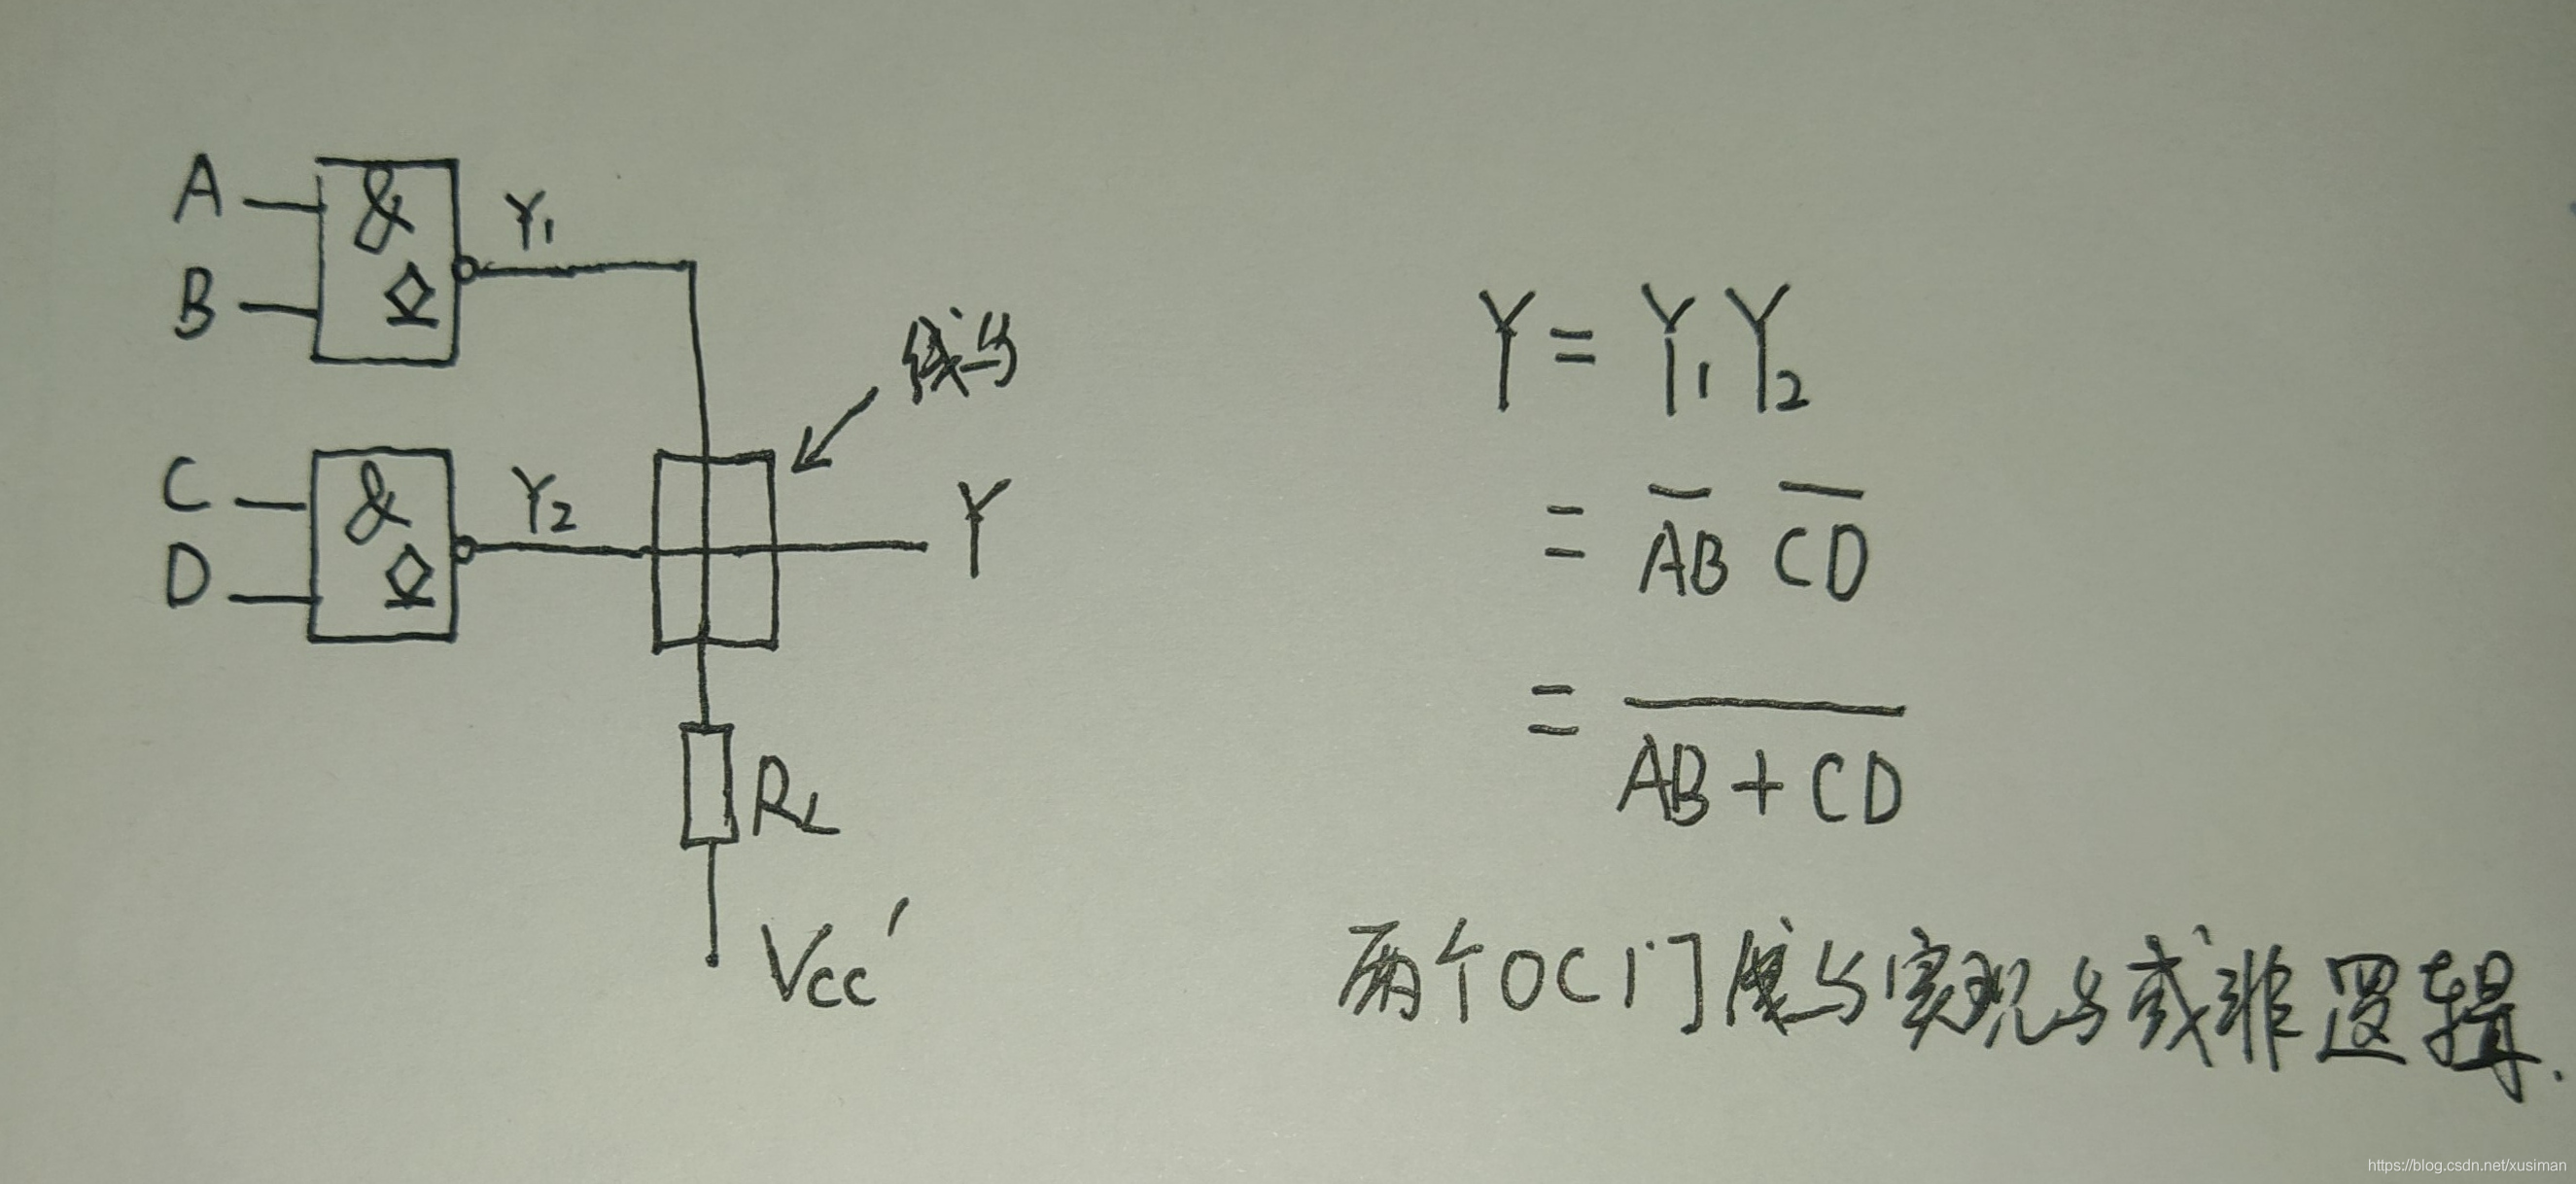 A
B
&
Y₁
线与
C
D
&
Y₂
Y
R_L
Vcc'
Y = Y₁Y₂
= \overline{AB} \overline{CD}
= \overline{AB + CD}
两个OC门线与实现与或非逻辑.
https://blog.csdn.net/xusiman